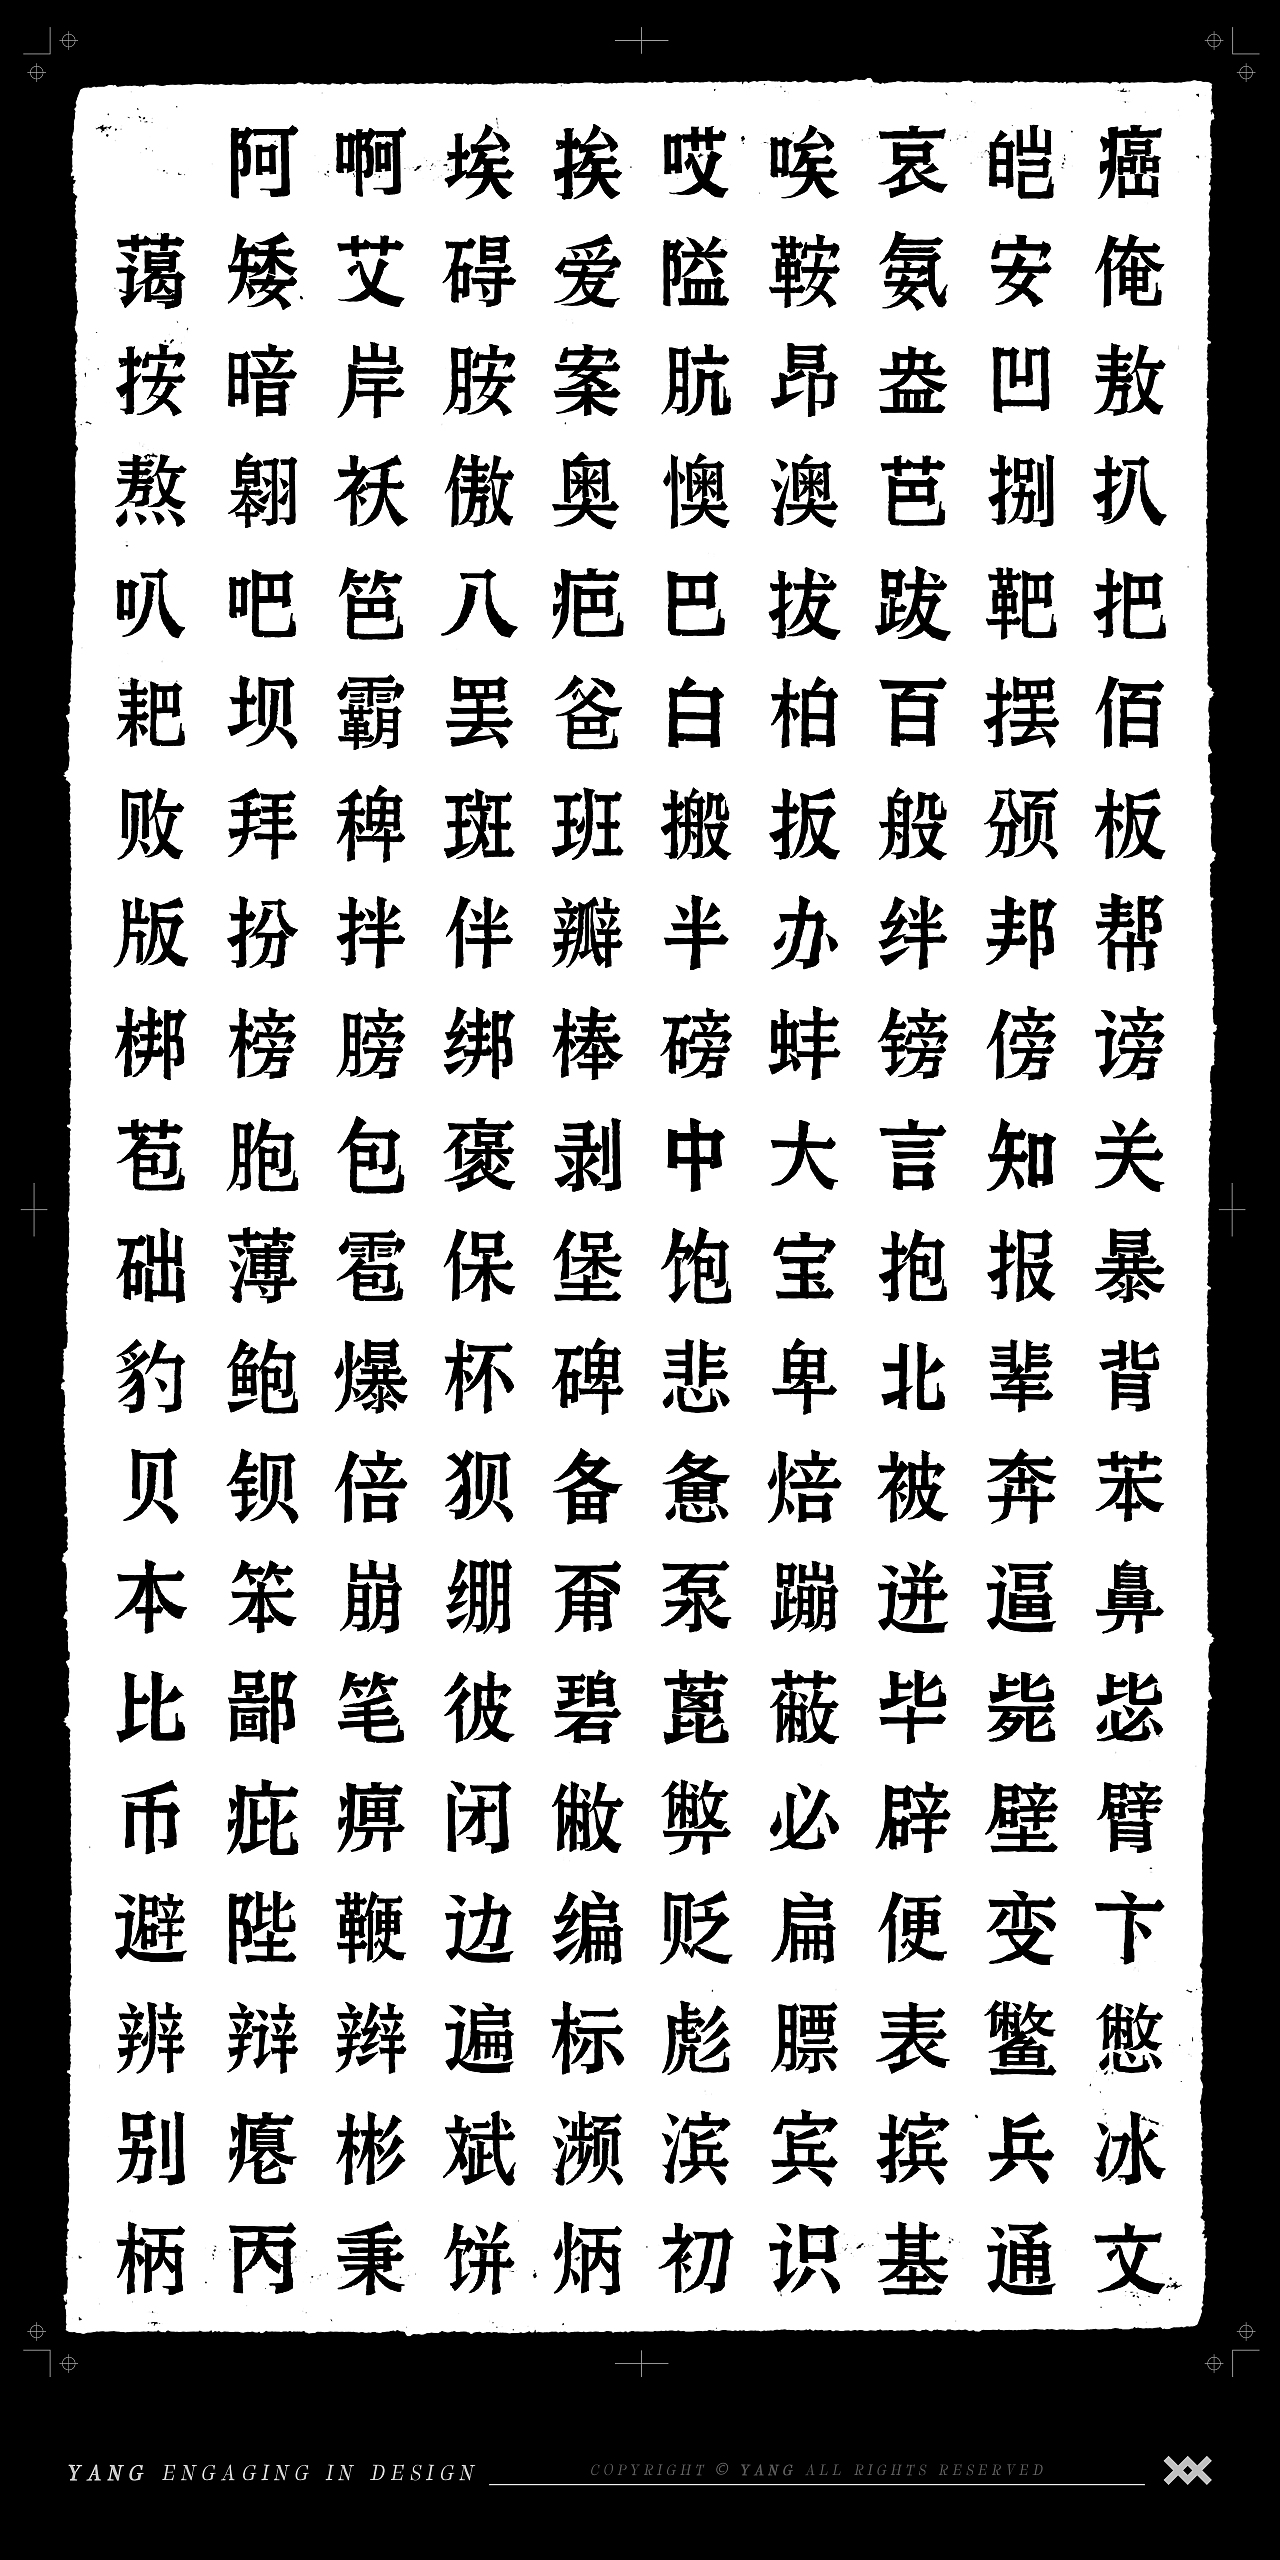 阿啊埃挨哎唉哀皑癌
蔼矮艾碍爱隘鞍氨安俺
按暗岸胺案肮昂盎凹敖
熬翱袄傲奥懊澳芭捌扒
叭吧笆八疤巴拔跋靶把
耙坝霸罢爸白柏百摆佰
败拜稗斑班搬扳般颁板
版扮拌伴瓣半办绊邦帮
梆榜膀绑棒磅蚌镑傍谤
苞胞包褒剥中大言知关
础薄雹保堡饱宝抱报暴
豹鲍爆杯碑悲卑北辈背
贝钡倍狈备惫焙被奔苯
本笨崩绷甭泵蹦迸逼鼻
比鄙笔彼碧蓖蔽毕毙毖
币庇痹闭敝弊必辟壁臂
避陛鞭边编贬扁便变卞
辨辩辫遍标彪膘表鳖憋
别瘪彬斌濒滨宾摈兵冰
柄丙秉饼炳初识基通文
YANG ENGAGING IN DESIGN
COPYRIGHT © YANG ALL RIGHTS RESERVED